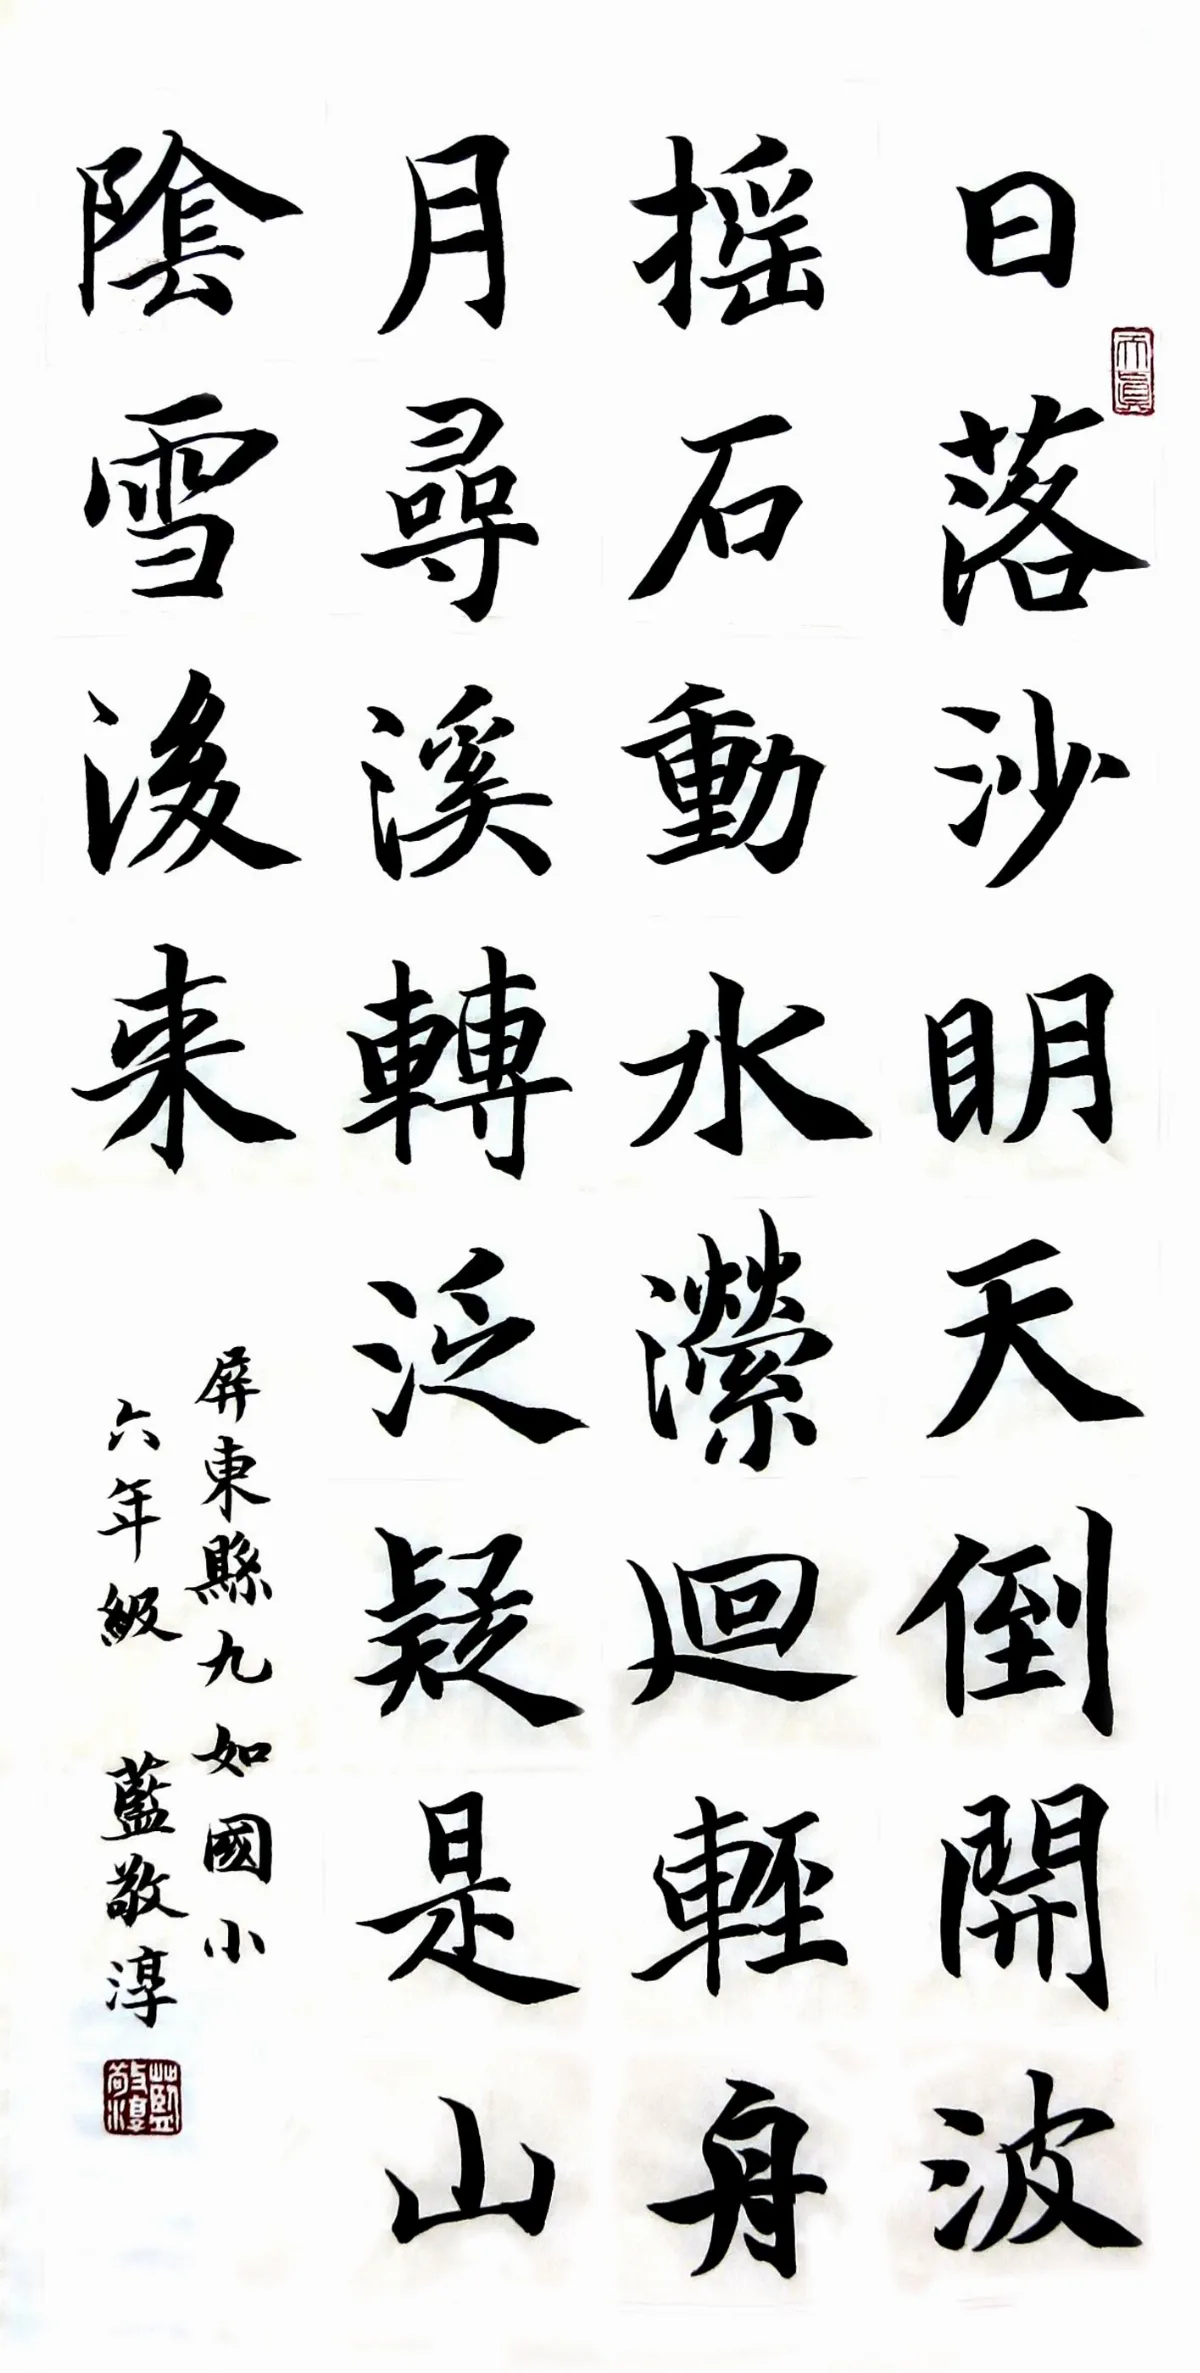 日落沙明天倒開波
搖石動水瀠迴輕舟
月尋溪轉泛疑是山
陰雪後来
屏東縣九如國小
六年級 藍敬淳
天真
藍敬淳